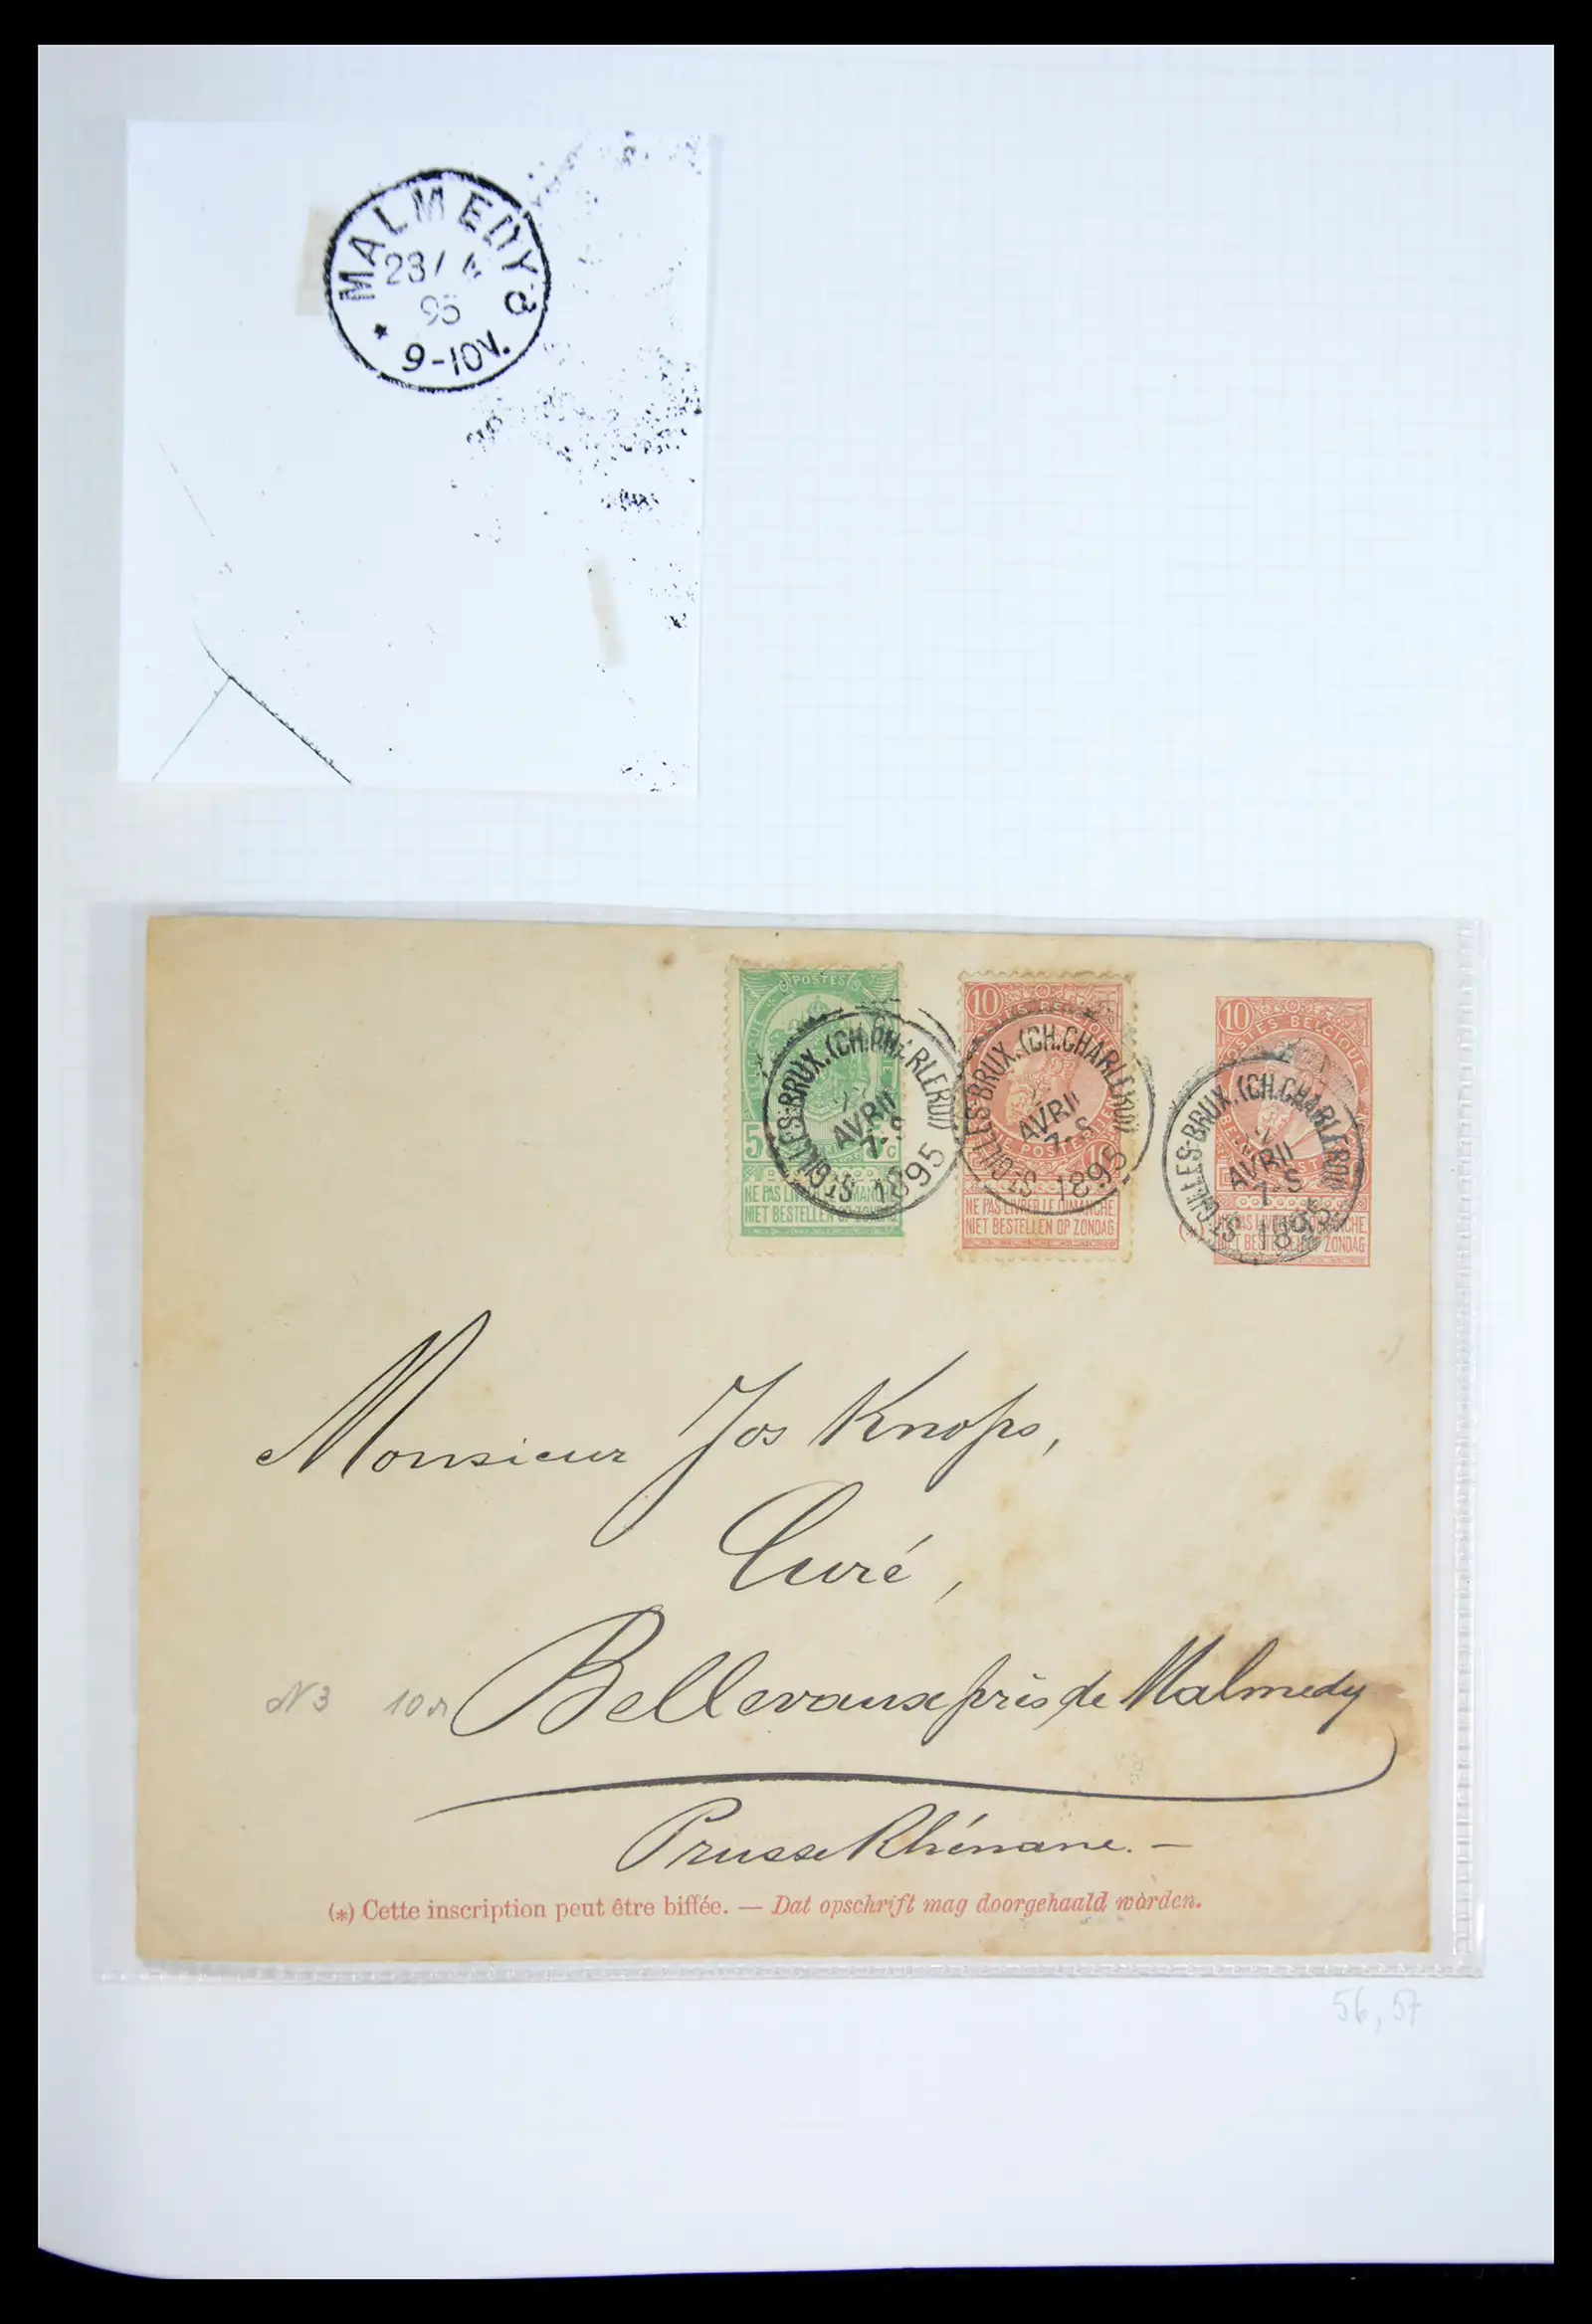 MALMEDY
23/4
95
9-10V.
POSTES
5
NE PAS LIVRER LE DIMANCHE
NIET BESTELLEN OP ZONDAG
ST GILLES-BRUX. (CH. CHARLEROI)
AVRIL
7-S
1895
10
NE PAS LIVRER LE DIMANCHE.
NIET BESTELLEN OP ZONDAG
ST GILLES-BRUX. (CH. CHARLEROI)
AVRIL
7-S
1895
10
POSTES BELGIQUE
(*) NE PAS LIVRER LE DIMANCHE.
NIET BESTELLEN OP ZONDAG
ST GILLES-BRUX. (CH. CHARLEROI)
AVRIL
7-S
1895
Monsieur Jos Knops,
Curé,
N3
Bellevaux près de Malmedy
Prusse Rhénane. —
(*) Cette inscription peut être biffée. — Dat opschrift mag doorgehaald worden.
56, 57